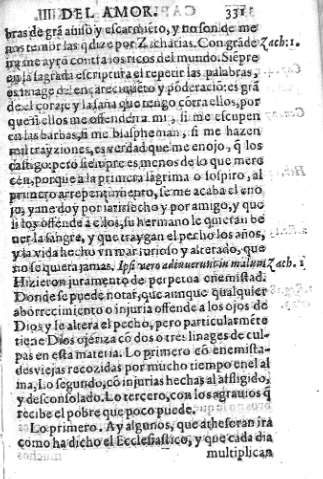 .IIII. DEL AMOR. 331
bras de grã auiso y escarmiẽto, y no son de me
nos temor las q̃ dize por Zacharias. Con grãde Zach: 1.
yra me ayro contra los ricos del mundo. Siẽpre
en la sagrada escriptura el repetir las palabras,
es image del encarecimiẽto y põderaciõ: es grã
de el coraje y la saña que tengo cõtra ellos, por
que si ellos me offenden a mi, si me escupen
en las barbas, si me blaspheman, si me hazen
mil trayziones, es verdad que me enojo, q̃ los
castigo: pero siempre es menos de lo que mere
cẽn, porque a la primera lagrima o sospiro, al
primero arrepentimiento, se me acaba el eno
jo, y ane doy por satisfecho y por amigo, y que
si los offende a ellos, su hermano le querran be
uer la sangre, y que traygan el pecho los años,
y la vida hecho vn mar furioso y alterado, que
no se quieta jamas. Ipsi vero adiuuerunt in malum Zach. 1
Hizieron juramento de perpetua enemistad.
Donde se puede notar, que aunque qualquier
aborrecimiento o injuria offende a los ojos de
Dios y le altera el pecho, pero particularmẽte
tiene Dios ojeriza cõ dos o tres linages de cul-
pas en esta materia. Lo primero cõ enemista-
des viejas recozidas por mucho tiempo enel al
ma, Lo segundo, cõ injurias hechas al afligido,
y desconsolado. Lo tercero, con los agrauios q̃
recibe el pobre que poco puede.
Lo primero. Ay algunos, que athesoran ira
como ha dicho el Ecclesiastico, y que cada dia
multiplican